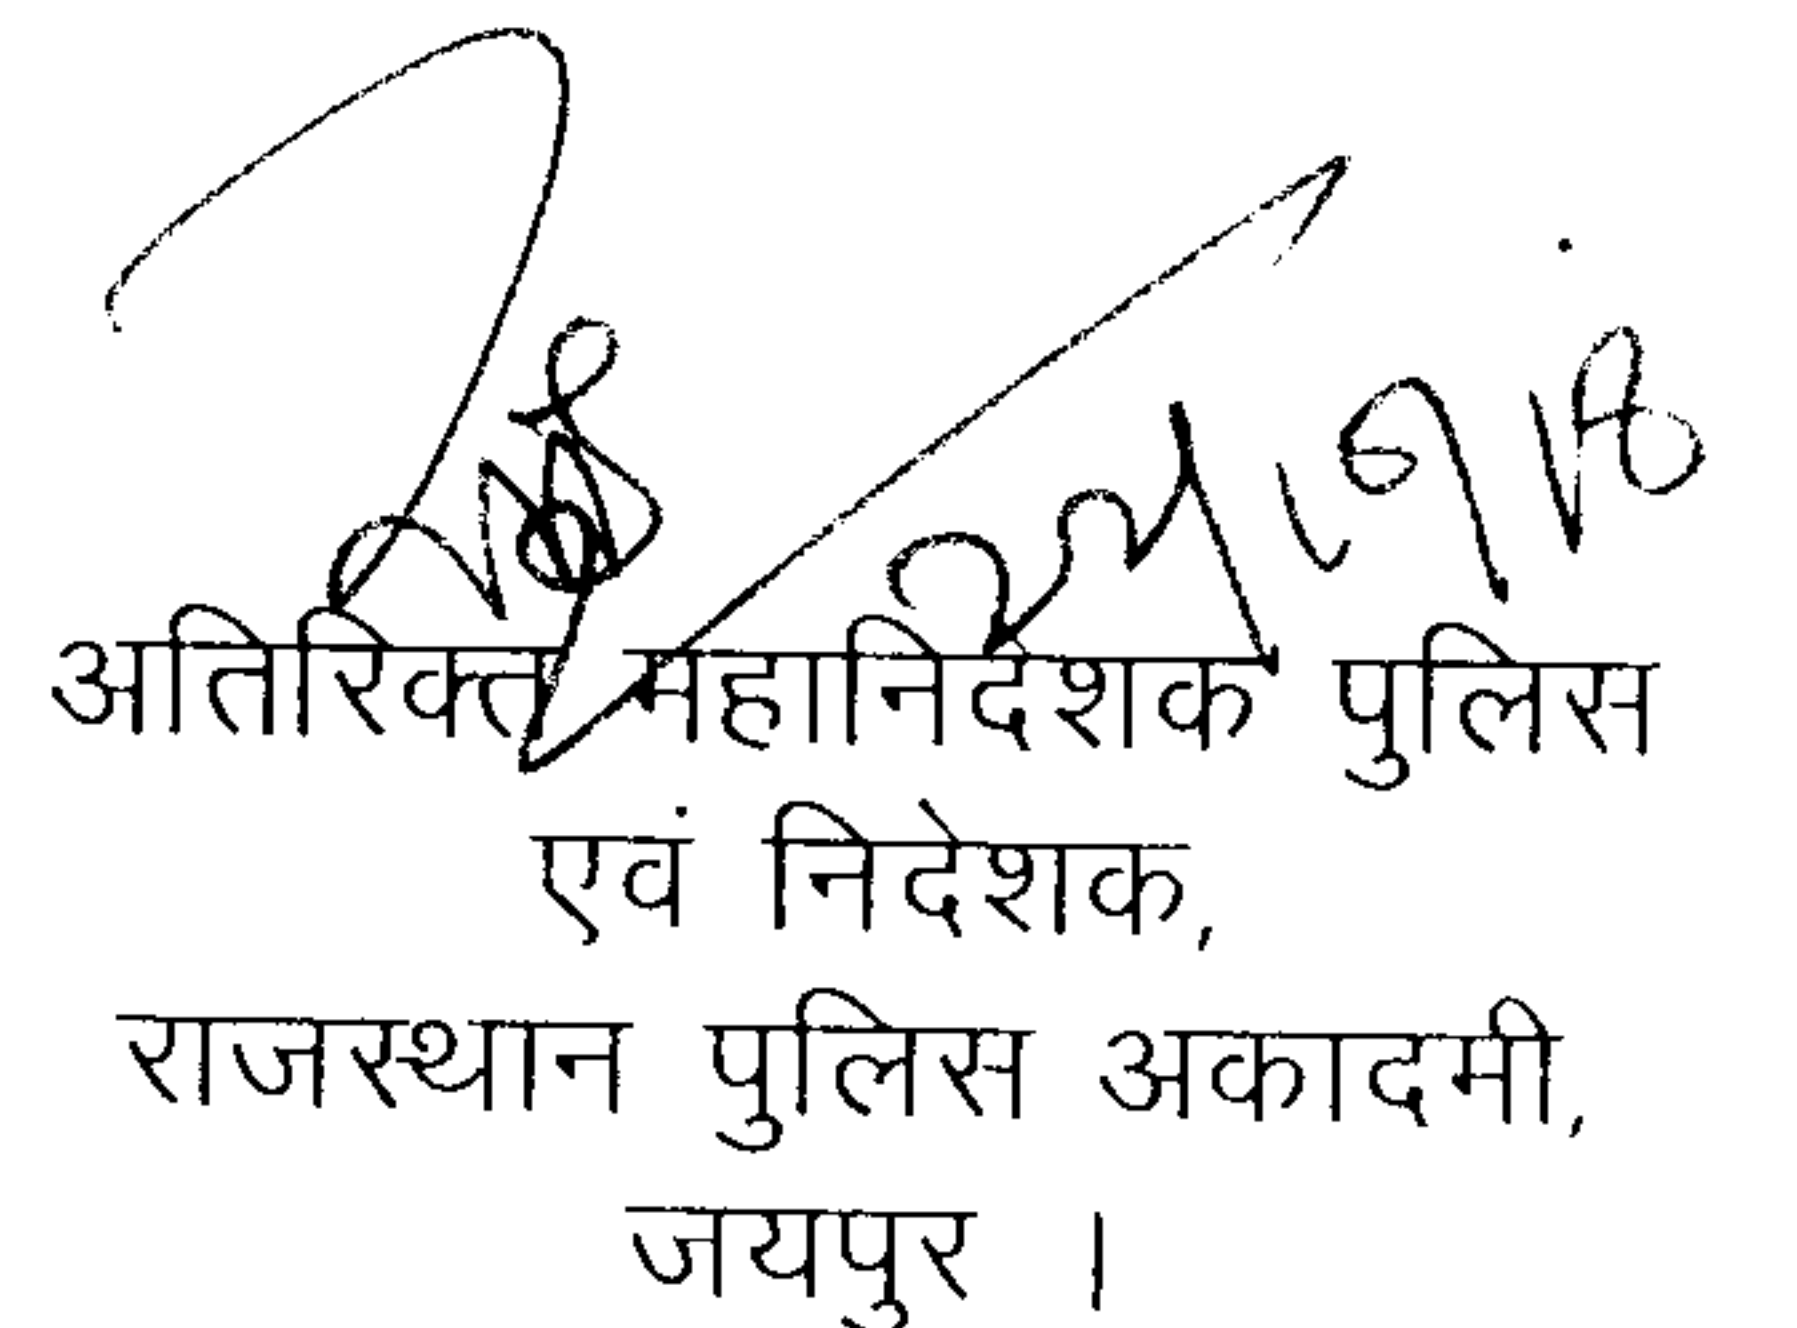 अतिरिक्त महानिदेशक पुलिस
एवं निदेशक,
राजस्थान पुलिस अकादमी,
जयपुर ।